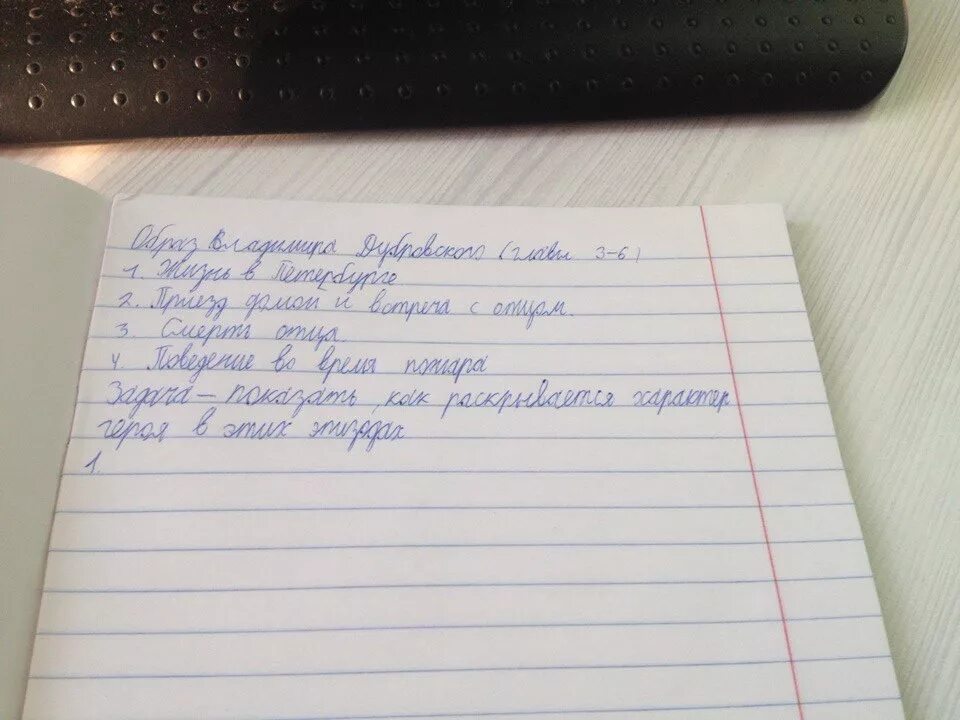 Образ Владимира Дубровского (главы 3-6)
1. Жизнь в Петербурге
2. Приезд домой и встреча с отцом.
3. Смерть отца.
4. Поведение во время пожара
Задача - показать, как раскрывается характер
героя в этих эпизодах
1.